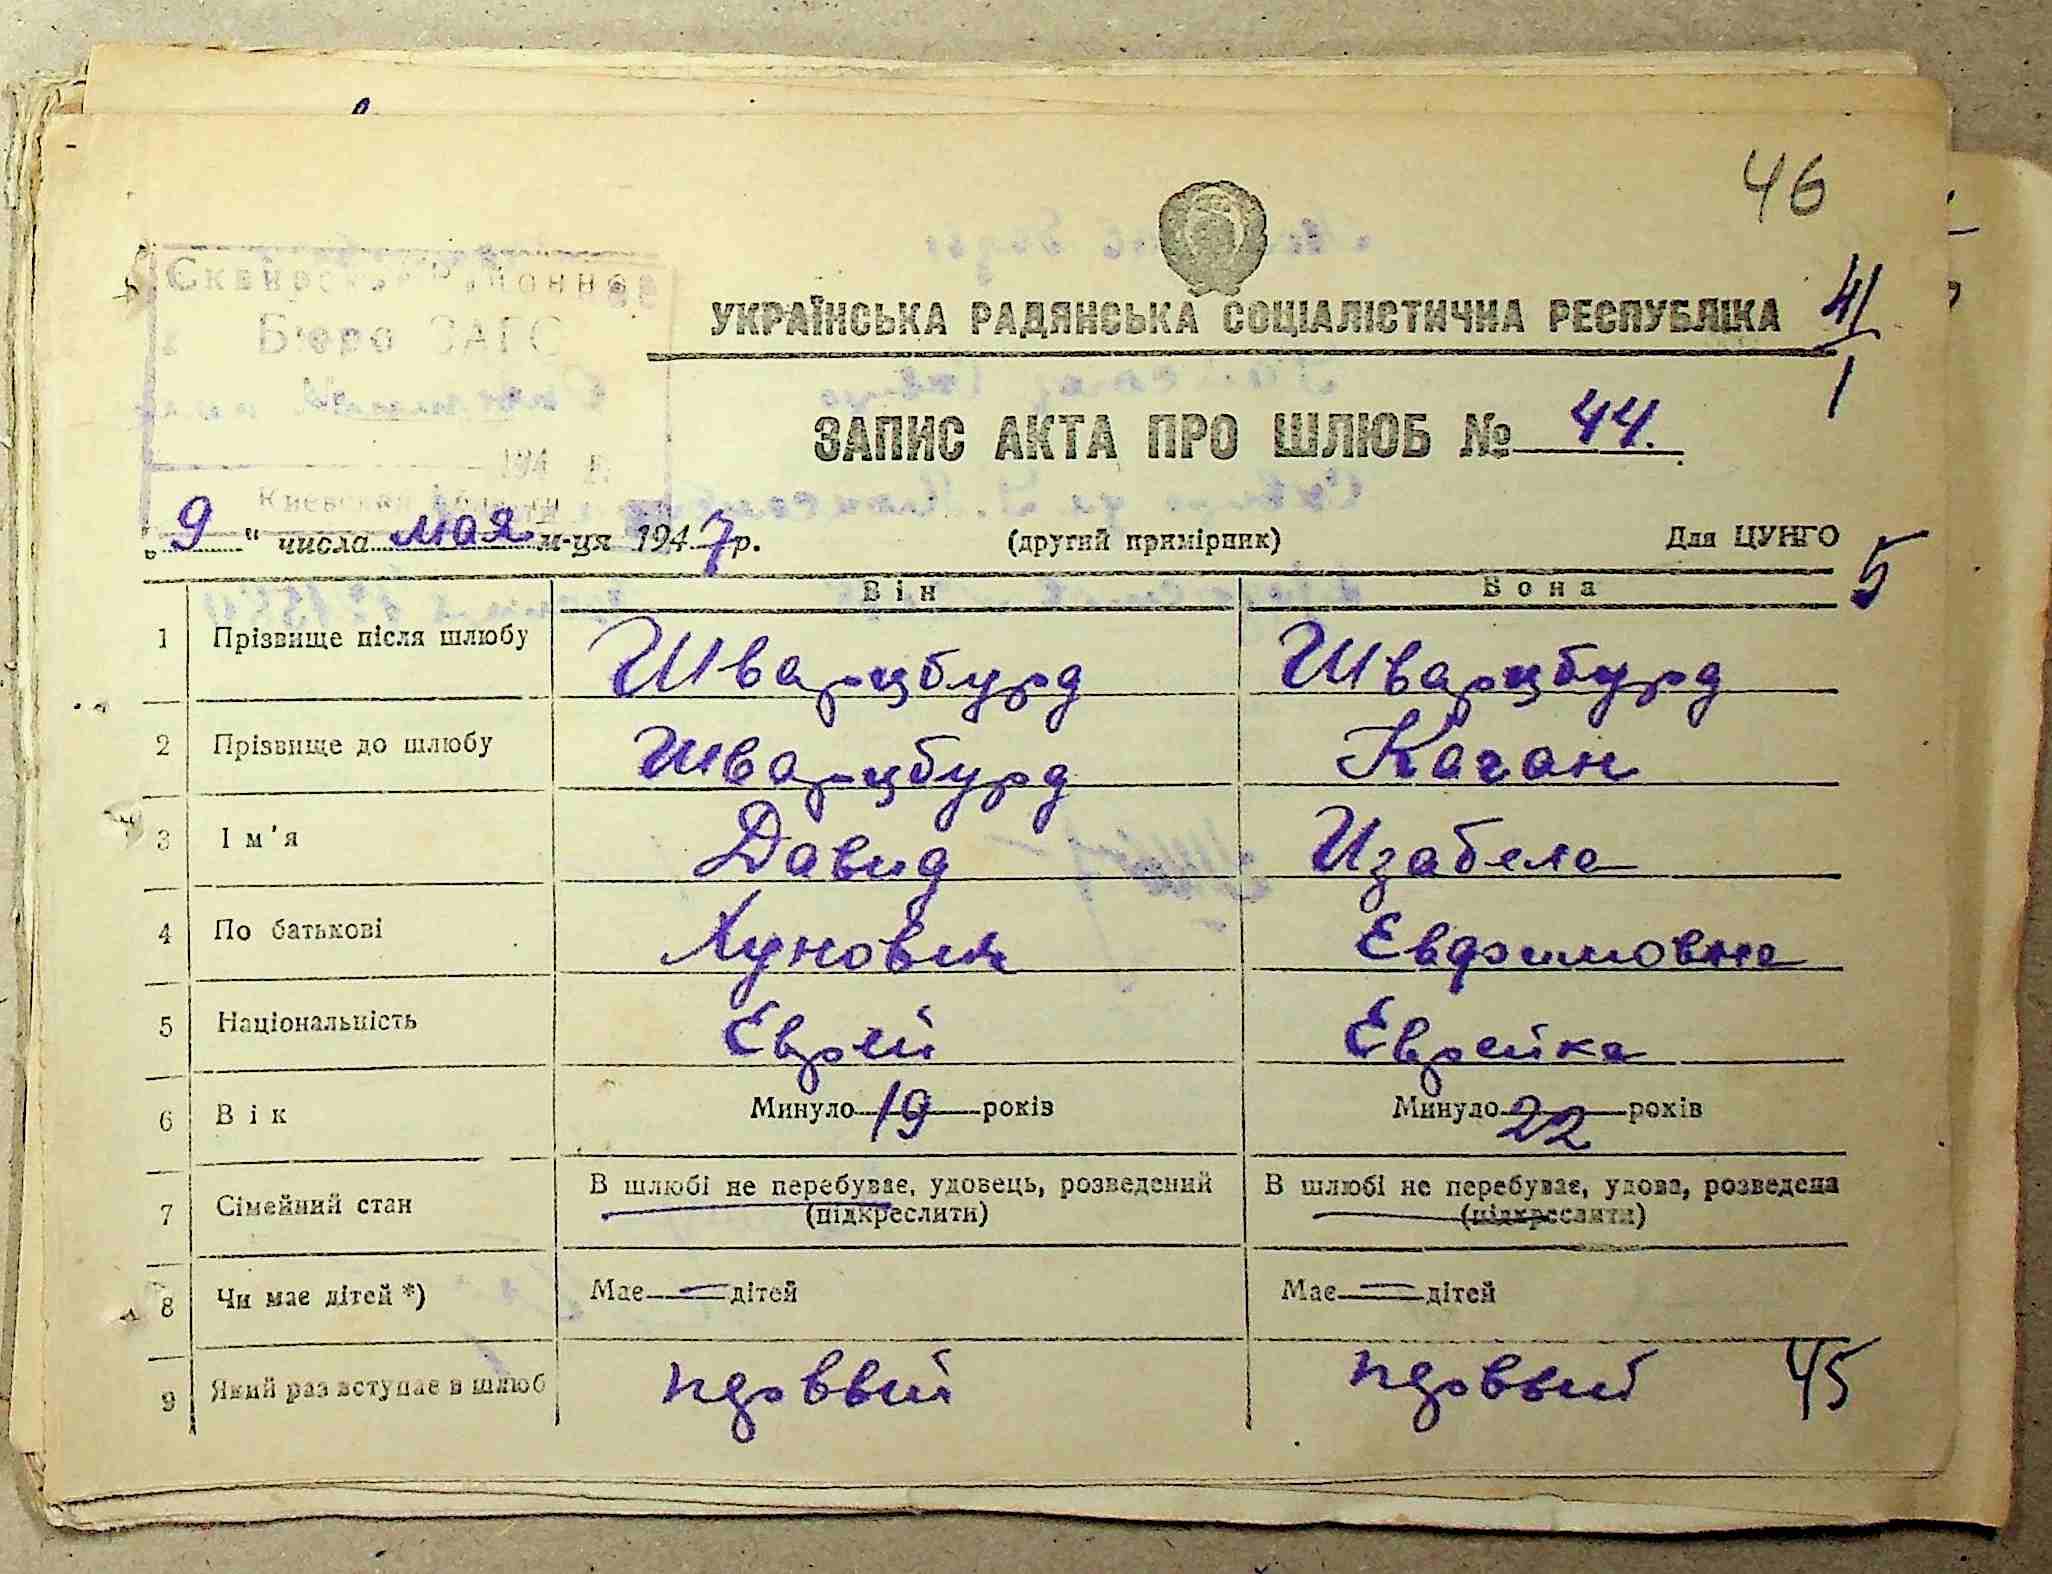 46
Бюро ЗАГС
194 г.
УКРАЇНСЬКА РАДЯНСЬКА СОЦІАЛІСТИЧНА РЕСПУБЛІКА
41
1
ЗАПИС АКТА ПРО ШЛЮБ № 44.
„ 9 " числа мая м-ця 1947 р. (другий примірник) Для ЦУНГО 5
Він Вона
1 Прізвище після шлюбу Шварцбурд Шварцбурд
2 Прізвище до шлюбу Шварцбурд Каган
3 Ім'я Давид Изабела
4 По батькові Евфримовна
5 Національність Еврей Еврейка
6 Вік Минуло 19 років Минуло 22 років
7 Сімейний стан В шлюбі не перебуває, удовець, розведений В шлюбі не перебуває, удова, розведена
(підкреслити) (підкреслити)
8 Чи має дітей *) Має — дітей Має — дітей
9 Який раз вступає в шлюб 45